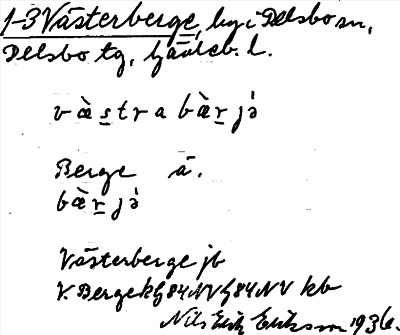 1-3 Västerberge, by i Delsbo sn,
Delsbo tg, Gävleb. l.
væ̀stra bæ̀rjə̇
Berge ä.
bæ̀rjə̇
Västerberge jb
V. Berge kb
Nils Erik Eriksson 1936.